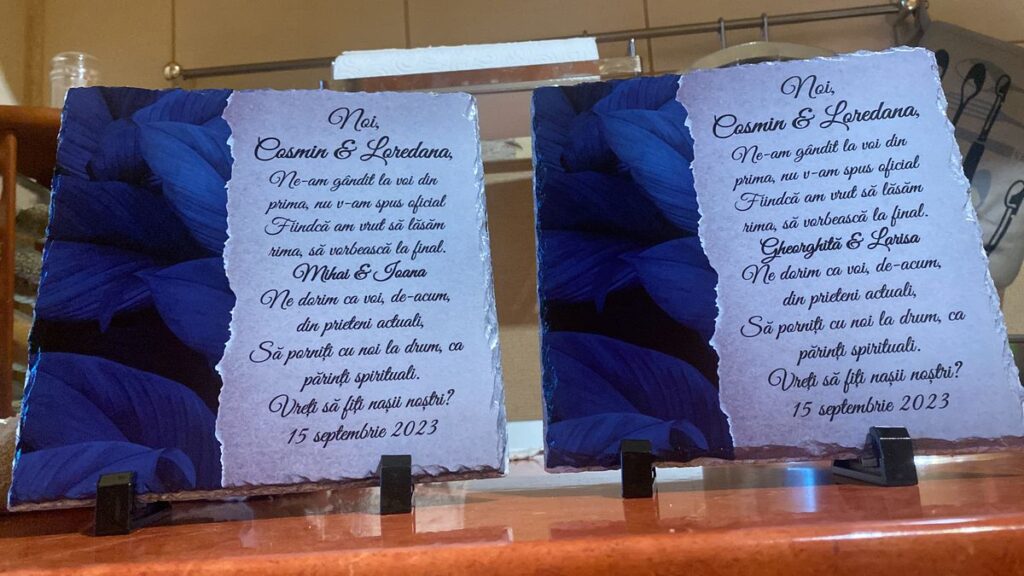 Noi,
Cosmin & Loredana,
Ne-am gândit la voi din
prima, nu v-am spus oficial
Fiindcă am vrut să lăsăm
rima, să vorbească la final.
Mihai & Ioana
Ne dorim ca voi, de-acum,
din prieteni actuali,
Să porniți cu noi la drum, ca
părinți spirituali.
Vreți să fiți nașii noștri?
15 septembrie 2023
Noi,
Cosmin & Loredana,
Ne-am gândit la voi din
prima, nu v-am spus oficial
Fiindcă am vrut să lăsăm
rima, să vorbească la final.
Gheorghită & Larisa
Ne dorim ca voi, de-acum,
din prieteni actuali,
Să porniți cu noi la drum, ca
părinți spirituali.
Vreți să fiți nașii noștri?
15 septembrie 2023